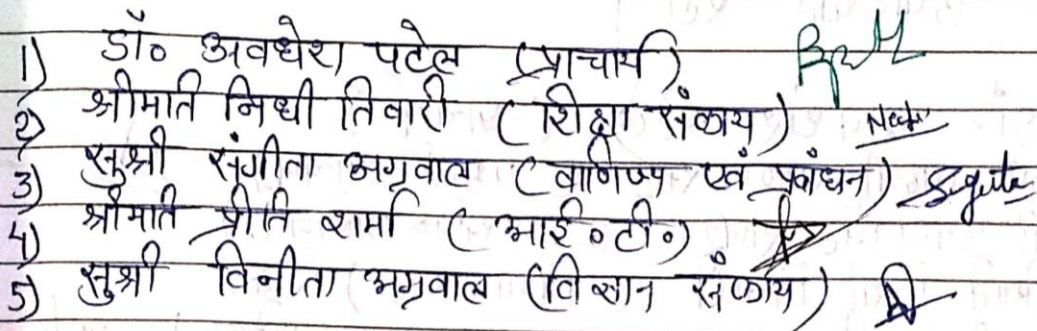 1) डॉ० अवधेश पटेल (प्राचार्य)
2) श्रीमति निधी तिवारी ( शिक्षा संकाय )
3) सुश्री संगीता अग्रवाल ( वाणिज्य एवं प्रबंधन ) Sgita
4) श्रीमति प्रीति शर्मा ( आई०टी०)
5) सुश्री विनीता अग्रवाल (विज्ञान संकाय)